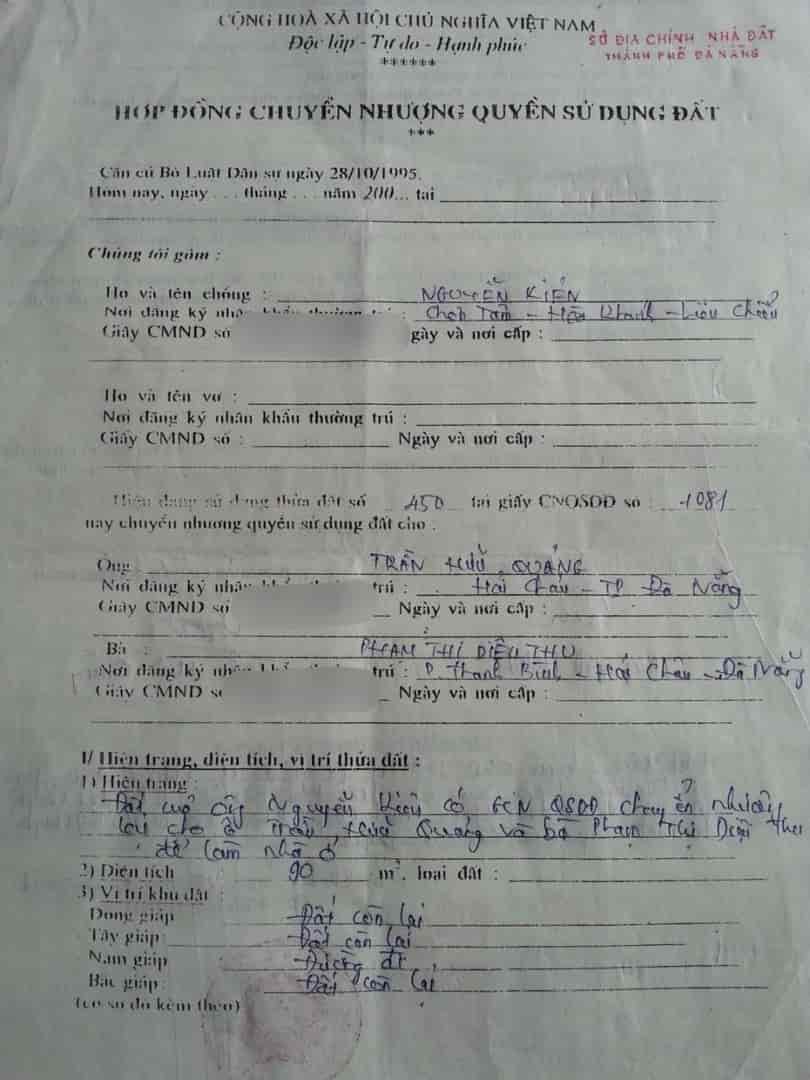 CỘNG HOÀ XÃ HỘI CHỦ NGHĨA VIỆT NAM
Độc lập - Tự do - Hạnh phúc
******
SỞ ĐỊA CHÍNH NHÀ ĐẤT
THÀNH PHỐ ĐÀ NẴNG
HỢP ĐỒNG CHUYỂN NHƯỢNG QUYỀN SỬ DỤNG ĐẤT
***
Căn cứ Bộ Luật Dân sự ngày 28/10/1995.
Hôm nay, ngày . . . tháng . . . năm 200... tại
Chúng tôi gồm :
Họ và tên chồng : NGUYỄN KIỂN
Nơi đăng ký nhân : Chơn Tâm - Hòa Khánh - Liên Chiểu
Giấy CMND số gày và nơi cấp :
Họ và tên vợ :
Nơi đăng ký nhân khẩu thường trú :
Giấy CMND số : Ngày và nơi cấp :
Hiện đang sử dụng thửa đất số 450 tại giấy CNQSDĐ số : 1081
nay chuyển nhượng quyền sử dụng đất cho :
Ông TRẦN HỮU QUẢNG
Nơi đăng ký nhân trú : Hải Châu - TP Đà Nẵng
Giấy CMND số Ngày và nơi cấp :
Bà : PHẠM THỊ DIỆU THU
Nơi đăng ký nhân trú : P. Thanh Bình - Hải Châu - Đà Nẵng
Giấy CMND số Ngày và nơi cấp :
I/ Hiện trạng, diện tích, vị trí thửa đất :
1) Hiện trạng :
Đất của ông Nguyễn Kiển có GCN QSDĐ chuyển nhượng
lại cho ô Trần Hữu Quảng và bà Phạm Thị Diệu Thu
để làm nhà ở
2) Diện tích 90 m². loại đất :
3) Vị trí khu đất :
Đông giáp Đất còn lại
Tây giáp Đất còn lại
Nam giáp Đường đi
Bắc giáp Đất còn lại
(có sơ đồ kèm theo)